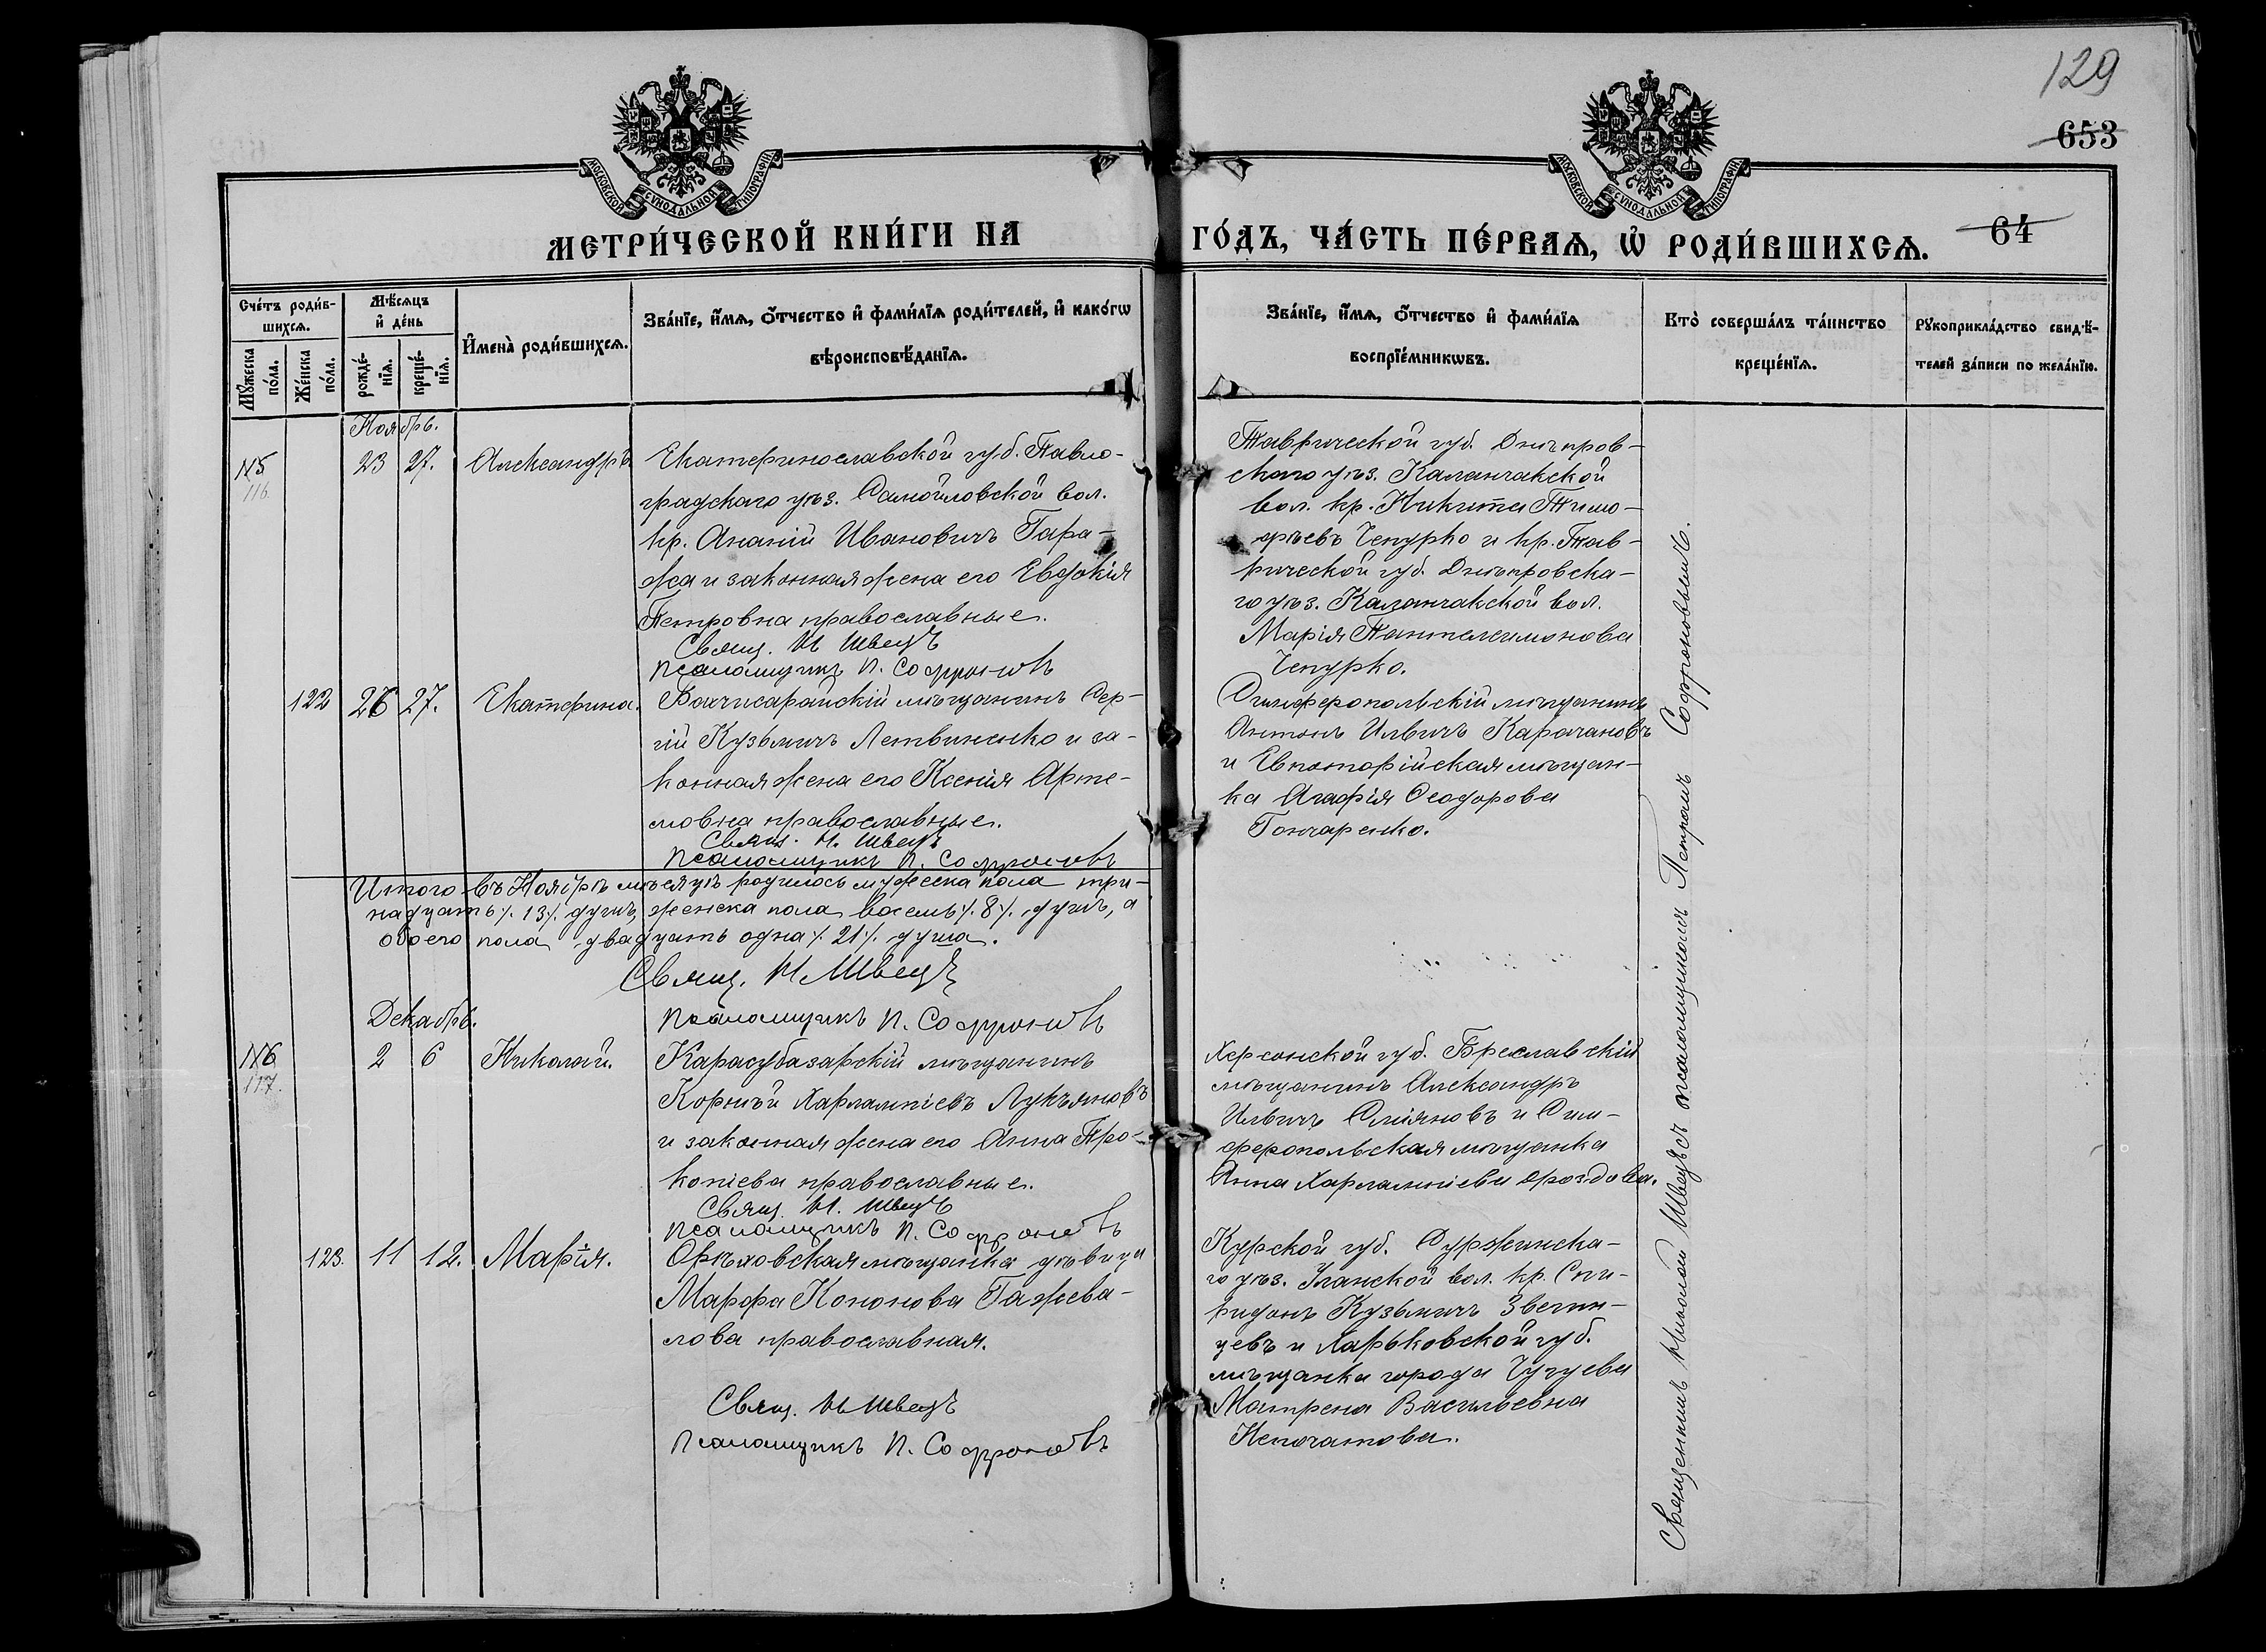 129
653
64
МОСКОВСКОЙ СѴНОДАЛЬНОЙ ТИПОГРАФІИ
МОСКОВСКОЙ СѴНОДАЛЬНОЙ ТИПОГРАФІИ
МЕТРИ́ЧЕСКОЙ КНИ́ГИ НА
ГО́ДЪ, ЧА́СТЬ ПЕ́РВАѦ, Ѡ҆ РОДИ́ВШИХСѦ.
Сче́тъ роди́в-
шихсѧ.
Мꙋ́жеска по́ла.
Же́нска по́ла.
Мѣ́сѧцъ
и҆ де́нь
рожде́-
нїѧ.
креще́-
нїѧ.
И҆мена̀ роди́вшихсѧ.
Зва́нїе, и҆́мѧ, ѻ҆́тчество и҆ фами́лїѧ роди́телей, и҆ како́гѡ
вѣроисповѣ́данїѧ.
Зва́нїе, и҆́мѧ, ѻ҆́тчество и҆ фами́лїѧ
воспрїе́мникѡвъ.
Кто̀ соверша́лъ та́инство
креще́нїѧ.
Рꙋкоприкла́дство свидѣ́-
телей за́писи по жела́нїю.
Ноябрь.
115
116
23 27. Александръ
Екатеринославской губ. Павло-
градскаго уѣз. Самойловской вол.
кр. Ананій Ивановичъ Гара-
жа и законная жена его Евдокія
Петровна православные.
Свящ. Н Швецъ
Псаломщикъ П. Софроновъ
Таврической губ. Днѣпров-
скаго уѣз. Каланчакской
вол. кр. Никита Тимо-
фѣевъ Чепурко и кр. Тав-
рической губ. Днѣпровска-
го уѣз. Каланчакской вол.
Марія Пантелеимонова
Чепурко.
122 26 27. Екатерина.
Бахчисарайскій мѣщанинъ Сер-
гій Кузьмичъ Летвиненко и за-
конная жена его Ксенія Арте-
мовна православные.
Свящ. Н. Швецъ
Псаломщикъ П. Софроновъ
Симферопольскій мѣщанинъ
Антонъ Ильичъ Карачановъ
и Евпаторійская мѣщан-
ка Агафія Ѳеодорова
Гончаренко.
Итого въ Ноябрѣ мѣсяцѣ родилось мужеска пола три-
надцать ٪ 13 ٪ душъ, женска пола восемь ٪ 8 ٪ душъ, а
обоего пола двадцать одна ٪ 21 ٪ душа.
Свящ. Н Швецъ
Псаломщикъ П. Софроновъ
Декабрь.
116
117.
2 6 Николай.
Карасубазарскій мѣщанинъ
Корнѣй Харлампіевъ Лукьяновъ
и законная жена его Анна Про-
копіева православные.
Свящ. Н. Швецъ
Псаломщикъ П. Софроновъ
Херсонской губ. Береславскій
мѣщанинъ Александръ
Ильичъ Сміяновъ и Сим-
феропольская мѣщанка
Анна Харлампіева Дроздова.
123. 11 12. Марія.
Орѣховская мѣщанка дѣвица
Марфа Кононова Гажева-
лова православная.
Свящ. Н Швецъ
Псаломщикъ П. Софроновъ
Курской губ. Суджинска-
го уѣз. Уланской вол. кр. Спи-
ридонъ Кузьмичъ Звегин-
цевъ и Харьковской губ.
мѣщанка города Чугуева
Матрена Васильевна
Непочатова.
Священникъ Николай Швецъ съ псаломщикомъ Петромъ Софроновымъ.